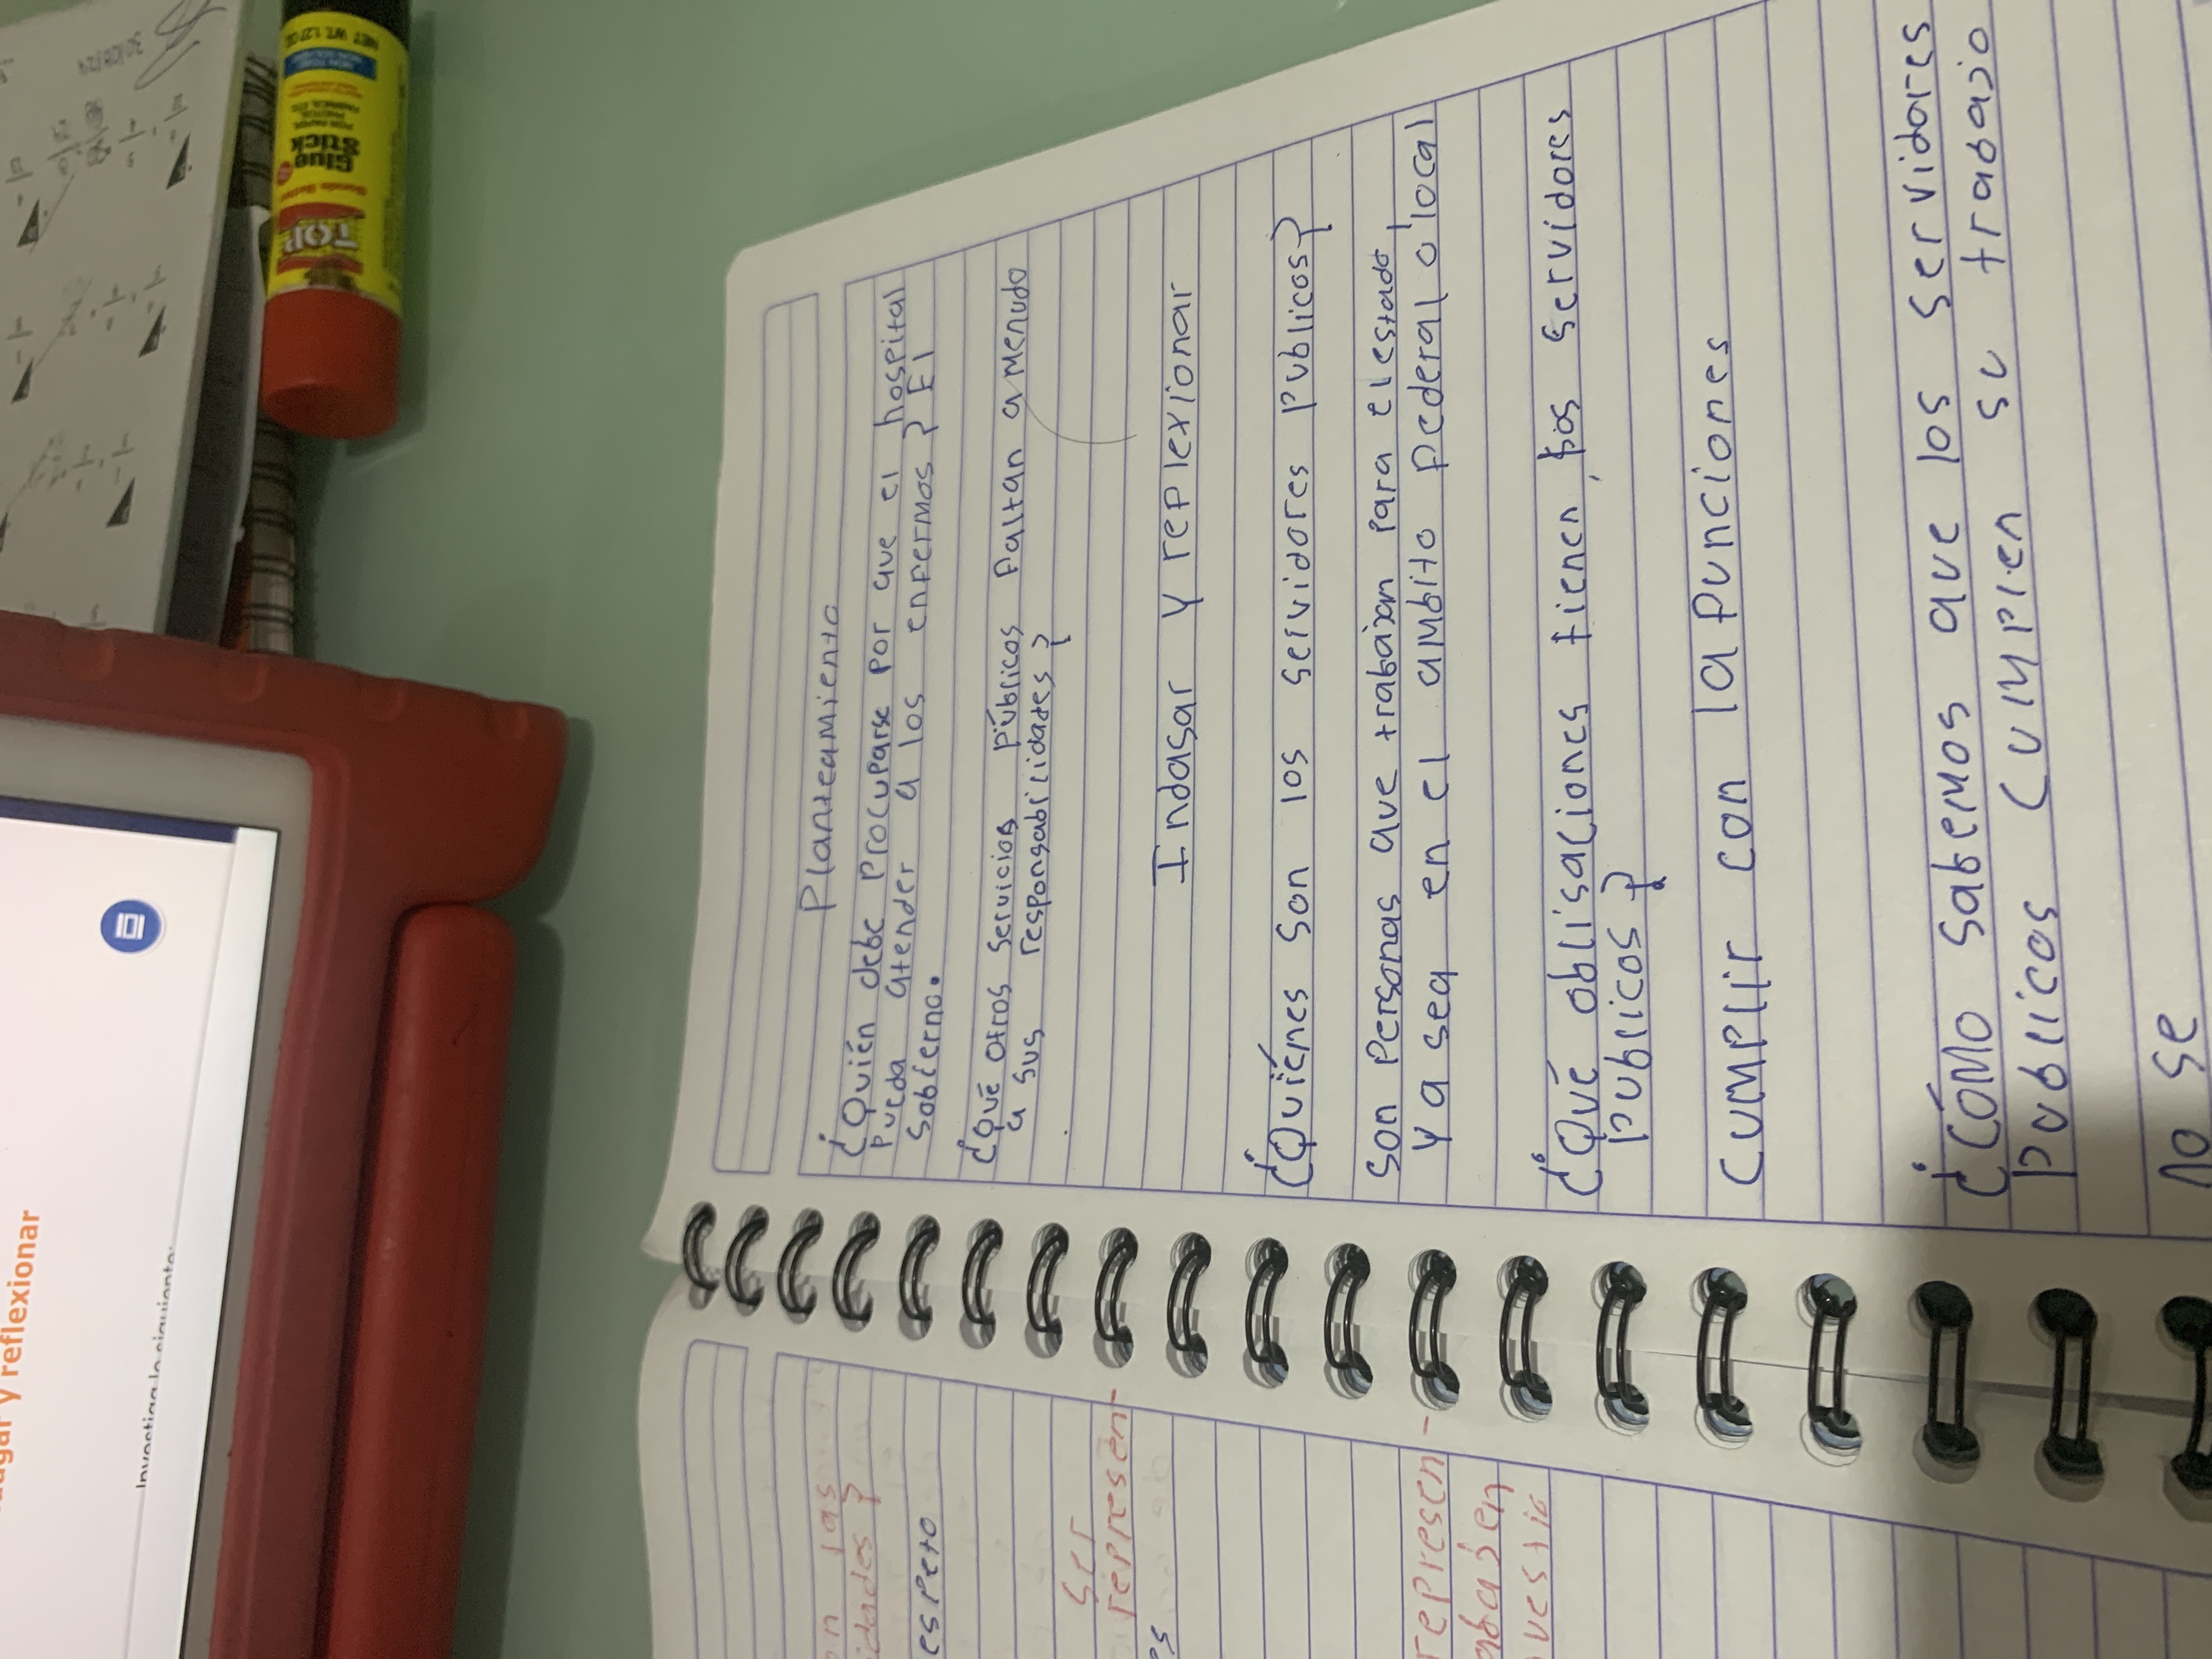 Planteamiento
¿Quién debe procuparse por que el hospital
pueda atender a los enfermos? El
gobierno.
¿Qué otros servicios públicos faltan a menudo
a sus responsabilidades?
Indagar y reflexionar
¿Quiénes son los servidores publicos?
Son personas que trabajam para el estado,
Ya sea en el ambito federal o local
¿Qué obligaciones tienen los servidores
publicos?
cumplir con la funciones
¿Cómo sabemos que los servidores
publicos cumplen su trabajo
no se
las
idades?
espeto
ser
represen-
es
represen-
vestig
y reflexionar
Investiga lo siguiente:
TOP
Glue
Stick
FOR PAPER,
PHOTOS,
FABRICS, ETC.
NON TOXIC
NET WT. 1.27 OZ
30/08/24